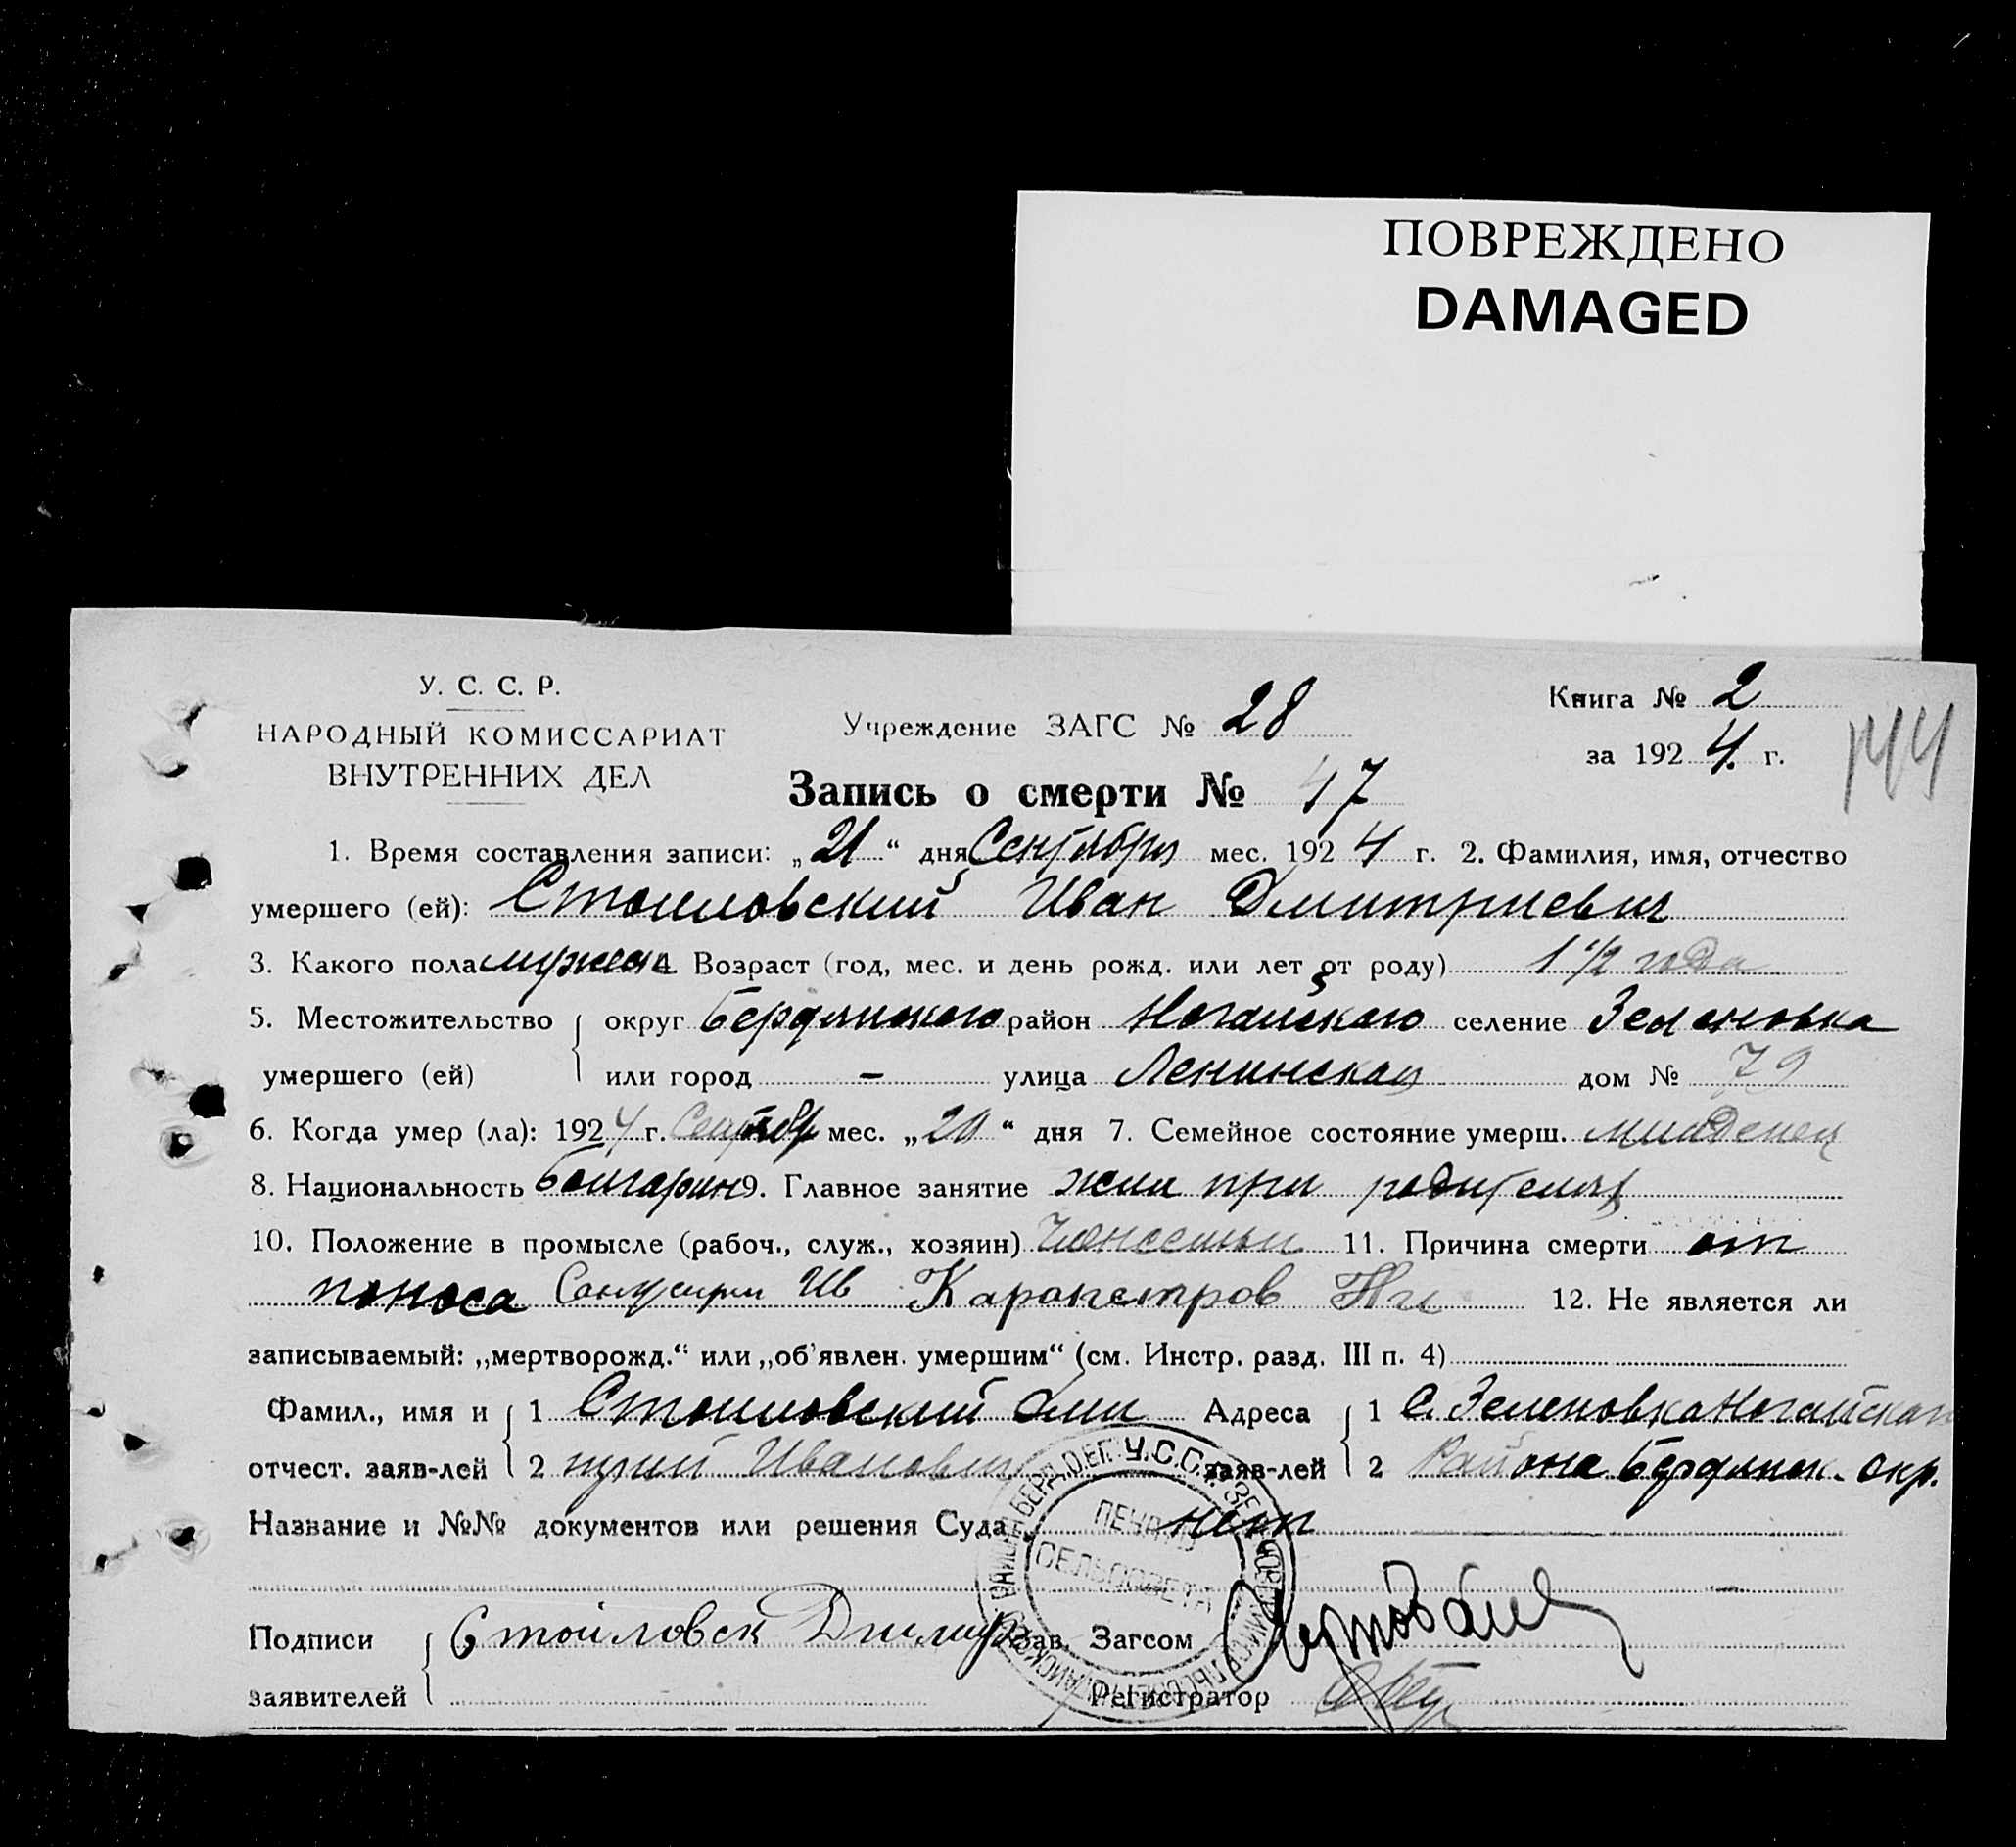 ПОВРЕЖДЕНО
DAMAGED
У. С. С. Р.
НАРОДНЫЙ КОМИССАРИАТ
ВНУТРЕННИХ ДЕЛ
Учреждение ЗАГС № 28
Книга № 2
за 1924 г.
144
Запись о смерти № 47
1. Время составления записи: „21“ дня Сентября мес. 1924 г. 2. Фамилия, имя, отчество
умершего (ей): Стоиловский Иван Дмитриевич
3. Какого пола мужск 4. Возраст (год, мес. и день рожд. или лет от роду) 1 1/2 года
5. Местожительство округ Бердянского район Ногайского селение Зеленовка
умершего (ей) или город - улица Ленинская дом № 79
6. Когда умер (ла): 1924 г. Сентябр мес. „20“ дня 7. Семейное состояние умерш. младенец
8. Национальность болгарин 9. Главное занятие жил при родителях
10. Положение в промысле (рабоч., служ., хозяин) 11. Причина смерти от
поноса Ив Карапетров 12. Не является ли
записываемый: „мертворожд.“ или „об'явлен. умершим“ (см. Инстр. разд. III п. 4)
Фамил., имя и 1 Стоиловский Дми Адреса 1 С. Зеленовка Ногайскаго
отчест. заяв-лей 2 трий Иванович заяв-лей 2 Района Бердянск. окр.
Название и №№ документов или решения Суда нет
ПЕЧАТЬ
СЕЛЬСОВЕТА
Подписи Стоиловск Димитр Зав. Загсом
заявителей Регистратор